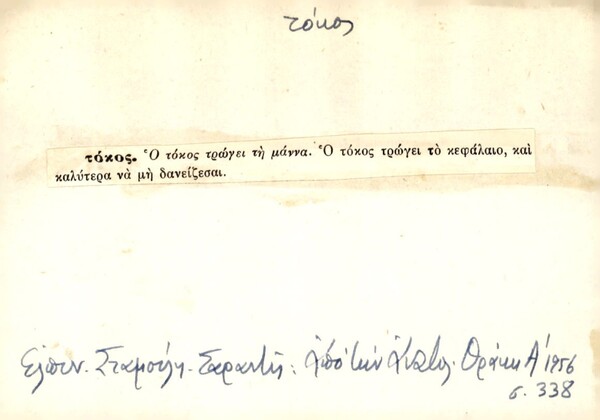 τόκος
τόκος. Ὁ τόκος τρώγει τὴ μάννα. Ὁ τόκος τρώγει τὸ κεφάλαιο, καὶ
καλύτερα νὰ μὴ δανείζεσαι.
Ἐλπιν. Σταμούλη-Σαραντῆ: Ἀπὸ τὴν Ἀνατολ. Θράκη Α΄ 1956
σ. 338